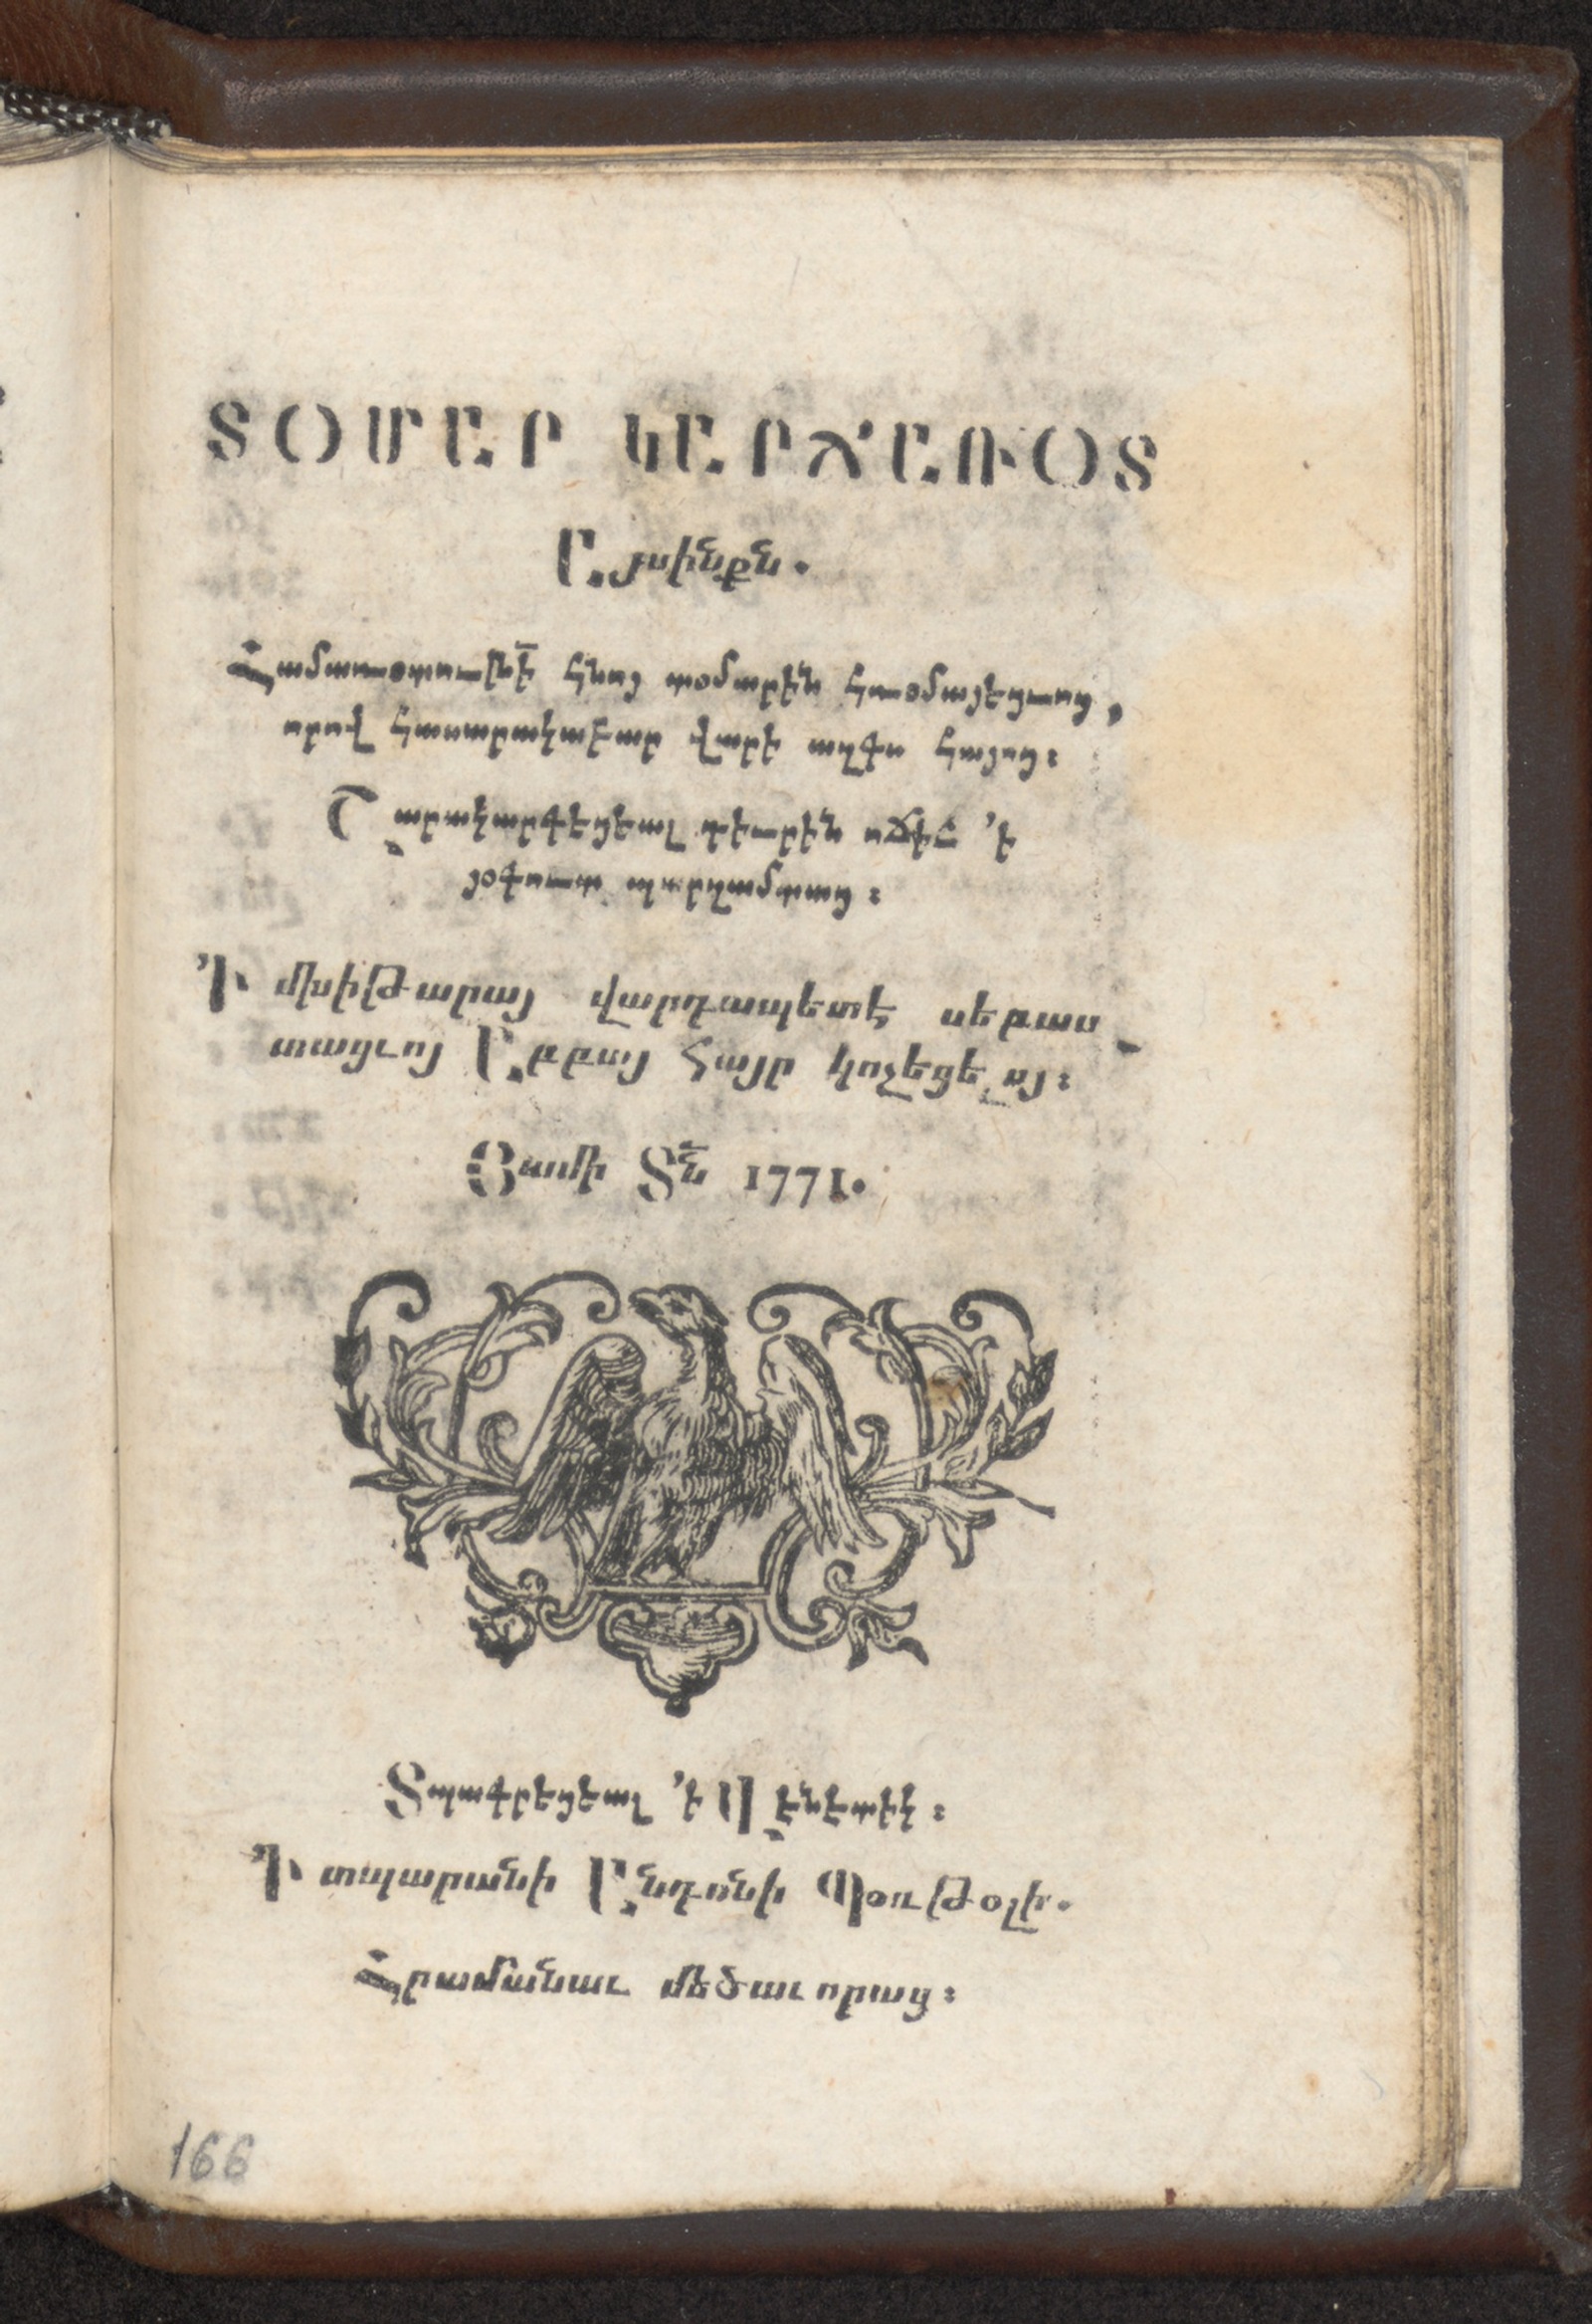 ՏՕՄԱՐ ԿԱՐՃԱՌՕՏ
Այսինքն.
Համառօտումն հնոյ տօմարին հռօմայեցւոց,
որով հասարակաբար վարի ազգս հայոց։
Շարակարգեցեալ գիւրին ոճիւ ՚ի
յօգուտ պարզամտաց։
Ի մխիթարայ վարդապետէ սեբաս_
տացւոյ Աբբայ հայր կոչեցելոյ։
Յամի Տն 1771.
Տպագրեցեալ ՚ի Վէնէտիկ։
Ի տպարանի Անդոնի Պօռթօլի.
Հրամանաւ մեծաւորաց։
166